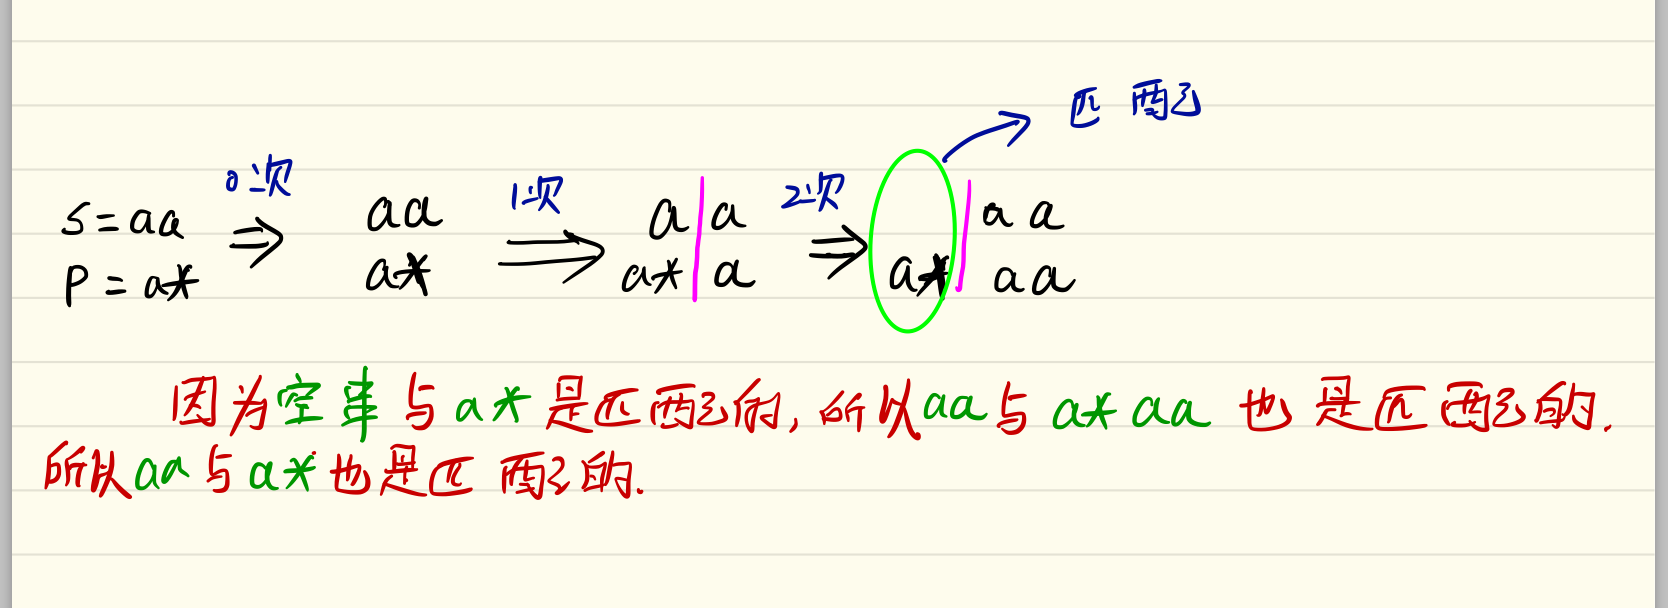 匹配
0次 1次 2次
s=aa ⇒ aa ⇒ a|a ⇒ |aa
P=a* a* a*|a a*|aa
因为空串与a*是匹配的,所以aa与a*aa也是匹配的.
所以aa与a*也是匹配的.